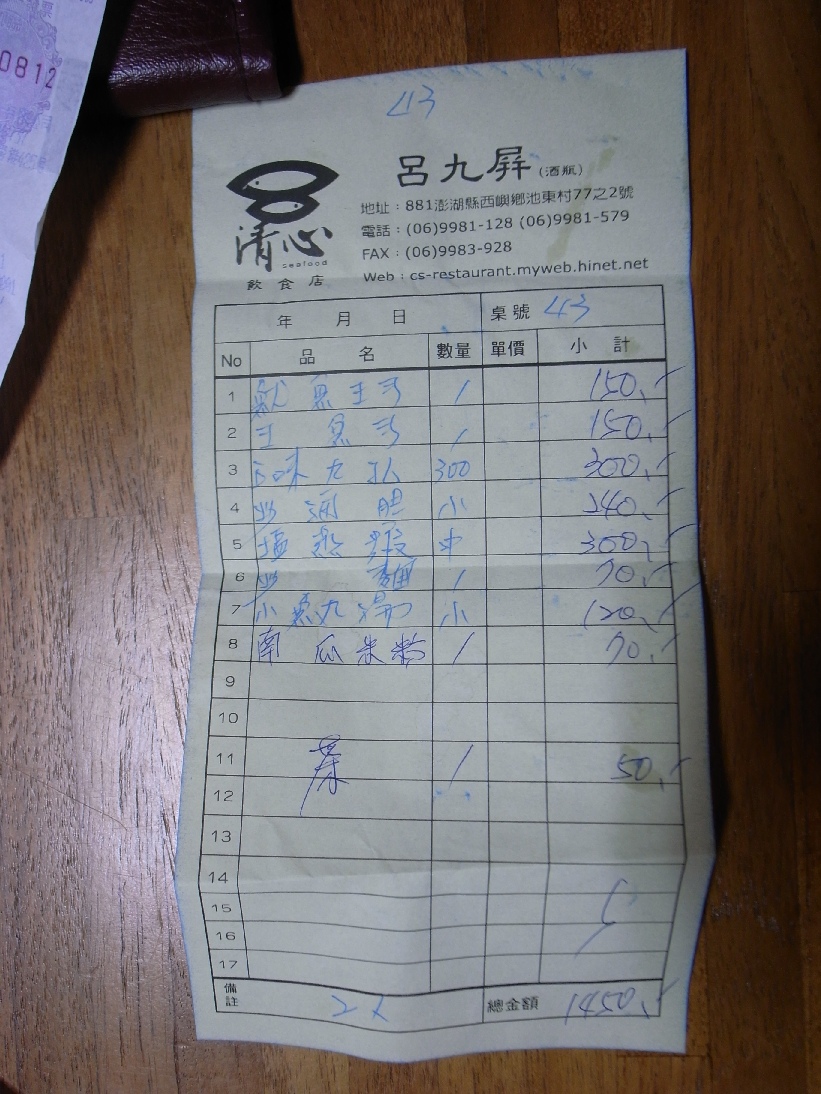 0812
43
呂九屏(酒瓶)
地址：881澎湖縣西嶼鄉池東村77之2號
電話：(06)9981-128 (06)9981-579
FAX：(06)9983-928
Web：cs-restaurant.myweb.hinet.net
清心
seafood
飲食店
年 月 日 桌號 43
No 品名 數量 單價 小計
1 魚 1 150
2 1 150
3 味九孔 300 300
4 炒 小 240
5 中 300
6 炒麵 1 70
7 小 丸湯 小 120
8 南瓜米粉 1 70
9
10
11 茶 1 50
12
13
14
15
16
17
備註 2人 總金額 1450